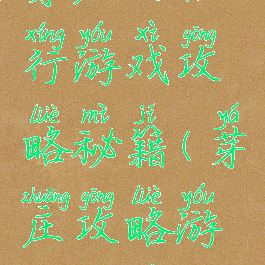 xíng yóu xì gōng
行游戏攻
lüè mì jí yá
略秘籍(芽
zhuāng gōng lüè yóu
庄攻略游